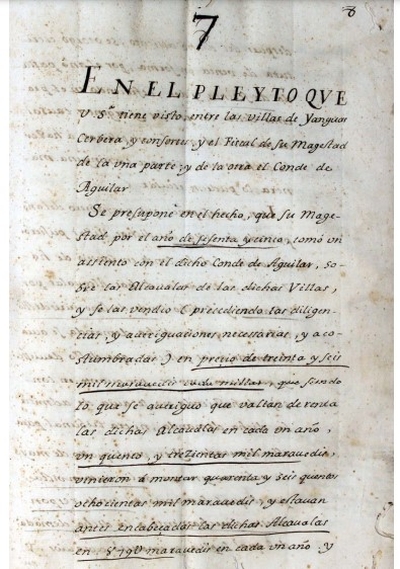 7
8
EN EL PLEYTO QVE
V. Sª. tiene visto, entre las Villas de Yanguas
Cerbera, y consortes, y el Fiscal de su Magestad
de la vna parte, y de la otra el Conde de
Aguilar
Se presupone en el hecho, que su Mage-
stad por el año de sesenta y cinco, tomó vn
assiento con el dicho Conde de Aguilar, so-
bre las Alcaualas de las dichas Villas,
y se las vendio (precediendo las diligen-
cias, y aueriguaciones necessarias, y aco-
stumbradas) en precio de treinta y seis
mil marauedis cada millar, que siendo
lo que se aueriguo que valian de renta
las dichas Alcaualas en cada vn año,
vn quento, y trezientas mil marauedis,
vinieron á montar quarenta y seis quentos
ochocientas mil marauedis, y estauan
antes encabeçadas las dichas Alcaualas
en marauedis en cada vn año, y